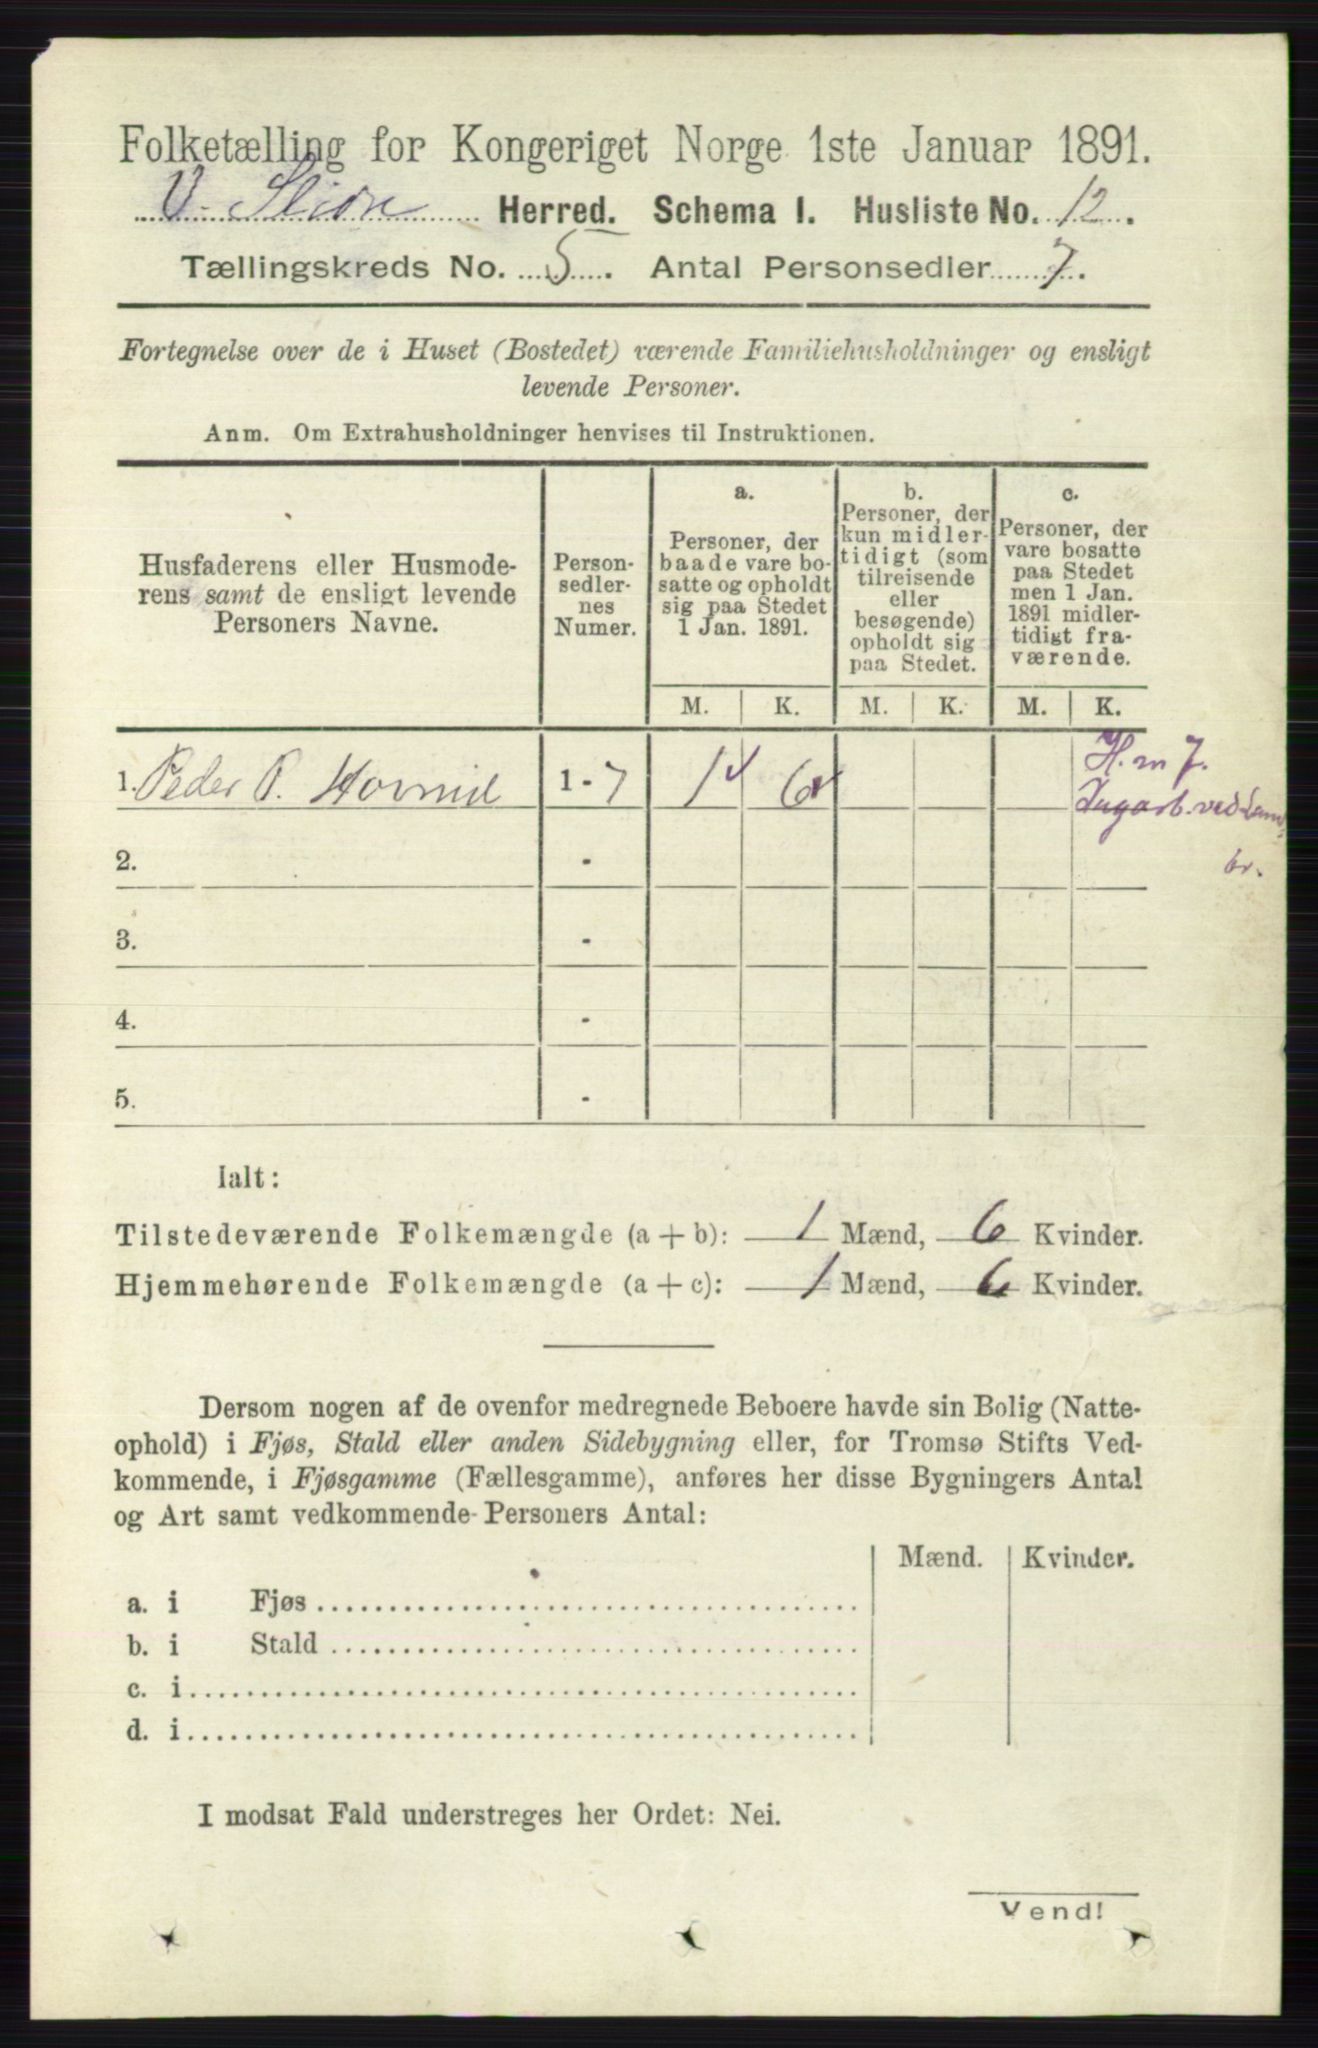 Folketælling for Kongeriget Norge 1ste Januar 1891.
V. Slidre Herred. Schema I. Husliste No. 12.
Tællingskreds No. 5. Antal Personsedler 7.
Fortegnelse over de i Huset (Bostedet) værende Familiehusholdninger og ensligt
levende Personer.
Anm. Om Extrahusholdninger henvises til Instruktionen.
Husfaderens eller Husmode-
rens samt de ensligt levende
Personers Navne.
Person-
sedler-
nes
Numer.
a.
Personer, der
baade vare bo-
satte og opholdt
sig paa Stedet
1 Jan. 1891.
b.
Personer, der
kun midler-
tidigt (som
tilreisende
eller
besøgende)
opholdt sig
paa Stedet.
c.
Personer, der
vare bosatte
paa Stedet
men 1 Jan.
1891 midler-
tidigt fra-
værende.
M. K. M. K. M. K.
1. Peder P. 1 - 7 1 6
H. m 7.
ved
2. -
3. -
4. -
5. -
Ialt:
Tilstedeværende Folkemængde (a + b): 1 Mænd, 6 Kvinder.
Hjemmehørende Folkemængde (a + c): 1 Mænd, 6 Kvinder.
Dersom nogen af de ovenfor medregnede Beboere havde sin Bolig (Natte-
ophold) i Fjøs, Stald eller anden Sidebygning eller, for Tromsø Stifts Ved-
kommende, i Fjøsgamme (Fællesgamme), anføres her disse Bygningers Antal
og Art samt vedkommende Personers Antal:
Mænd. Kvinder.
a. i Fjøs
b. i Stald
c. i
d. i
I modsat Fald understreges her Ordet: Nei.
Vend!